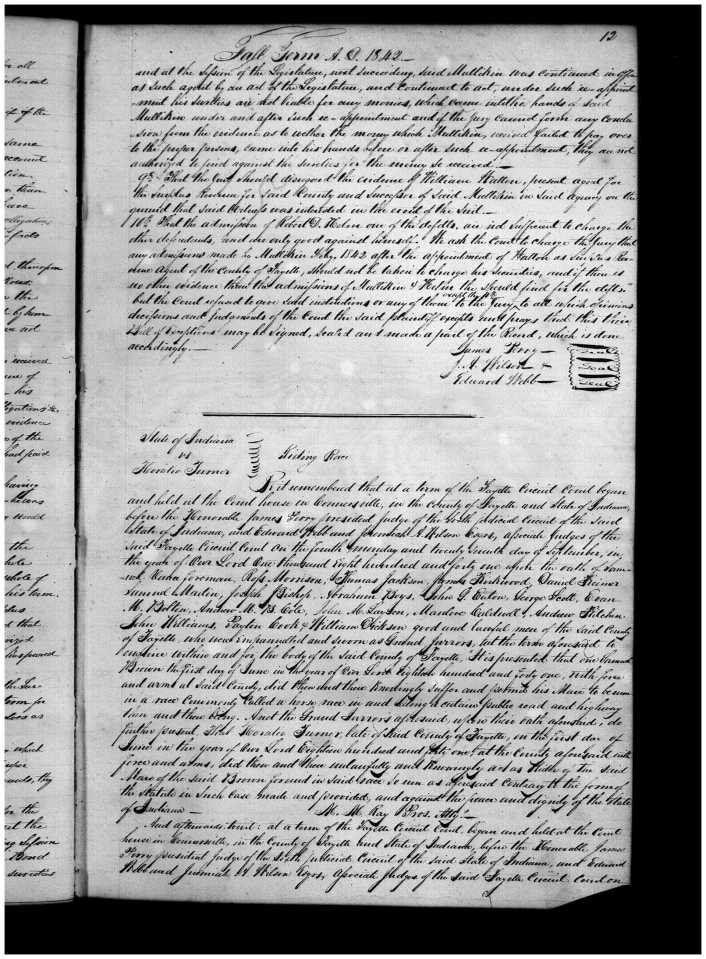 12
Fall Term A.D. 1842
and at the Session of the Legislature, next succeeding, said Mulliken was continued in office
as such agent by an act of the Legislature, and continued to act, under such re-appoint
ment his sureties are not liable for any monies, which came into the hands of said
Mulliken under and after such re-appointment and if the jury cannot form any conclu
sion from the evidence as to wether the money which Mulliken, received failed to pay over
to the proper persons, came into his hands before or after such re-appointment, they are not
authorized to find against the sureties for the money so received.
9th That the Court should disregard the evidence of William Hatton, present agent for
the Surplus Revenue for said County and successor of said Mulliken in said agency on the
ground that said Witness was interested in the event of the suit.
10th That the admission of Robert D. Helm one of the defdts, are not sufficient to charge the
other defendants, and are only good against himself. We ask the Court to charge the jury that
any admissions made by Mulliken Feby. 1842 after the appointment of Hatton as Surplus Rev
enue Agent of the County of Fayette, should not be taken to charge his Securities, and if there is
no other evidence than the admissions of Mulliken & Helm they should find for the defts
except the 10th
but the Court refused to give said instructions or any of them to the Jury, to all which opinions
decisions and judgments of the Court the said plaintiff excepts and prays that this their
Bill of exceptions may be signed, sealed and made a part of the Record, which is done
accordingly.
James Perry Seal
J. A. Wilson Seal
Edward Webb Seal
State of Indiana
vs
Horatio Turner
Riding Race
Be it remembered that at a term of the Fayette Circuit Court began
and held at the Court house in Connersville, in the County of Fayette and State of Indiana,
before the Honorable James Perry president judge of the Sixth judicial Circuit of the said
State of Indiana, and Edward Webb and Jeremiah A Wilson Esqrs, associate judges of the
said Fayette Circuit Court on the fourth monday and twenty seventh day of September, in
the year of Our Lord One thousand Eight hundred and forty one upon the oath of
foreman, Ross Morrison, Thomas Jackson, James Kirkwood, Daniel
Samuel Martin, Joseph Bishop, Abraham Boys, John G. Eaton, George Fell, Evan
M. Bolton, Andrew M. B. Cole, John M. Lawson, Mardove Caldwell, Andrew Kitchen
John Williams, Payton Cook & William Dickson good and lawful men of the said County
of Fayette who were impannelled and sworn as Grand Jurrors, at the term aforesaid to
enquire within and for the body of the said County of Fayette, It is presented that one
Brown the first day of June in the year of Our Lord Eighteen hundred and forty one, with force
and arms at said County, did then and there knowingly suffer and permit his Mare to be run
in a race Commonly Called a horse race in and along a certain public road and highway
then and there being. And the Grand Jurrors aforesaid, upon their oath aforesaid, do
further present, that Horatio Turner, late of said County of Fayette, on the first day of
June in the year of Our Lord Eighteen hundred and forty one, at the County aforesaid with
force and arms, did then and there unlawfully and knowingly act as Rider of the said
Mare of the said Brown forered in said race so run as aforesaid Contrary to the form of
the Statute in such Case made and provided, and against the peace and dignity of the State
of Indiana M. M. Ray Pros. Atty.
And afterwards towit: at a term of the Fayette Circuit Court, began and held at the Court
house in Connersville, in the County of Fayette and State of Indiana, before the Honorable, James
Perry president judge of the Sixth judicial Circuit of the said State of Indiana, and Edward
Webb and Jeremiah A Wilson Esqrs, Associate judges of the said Fayette Circuit Court on